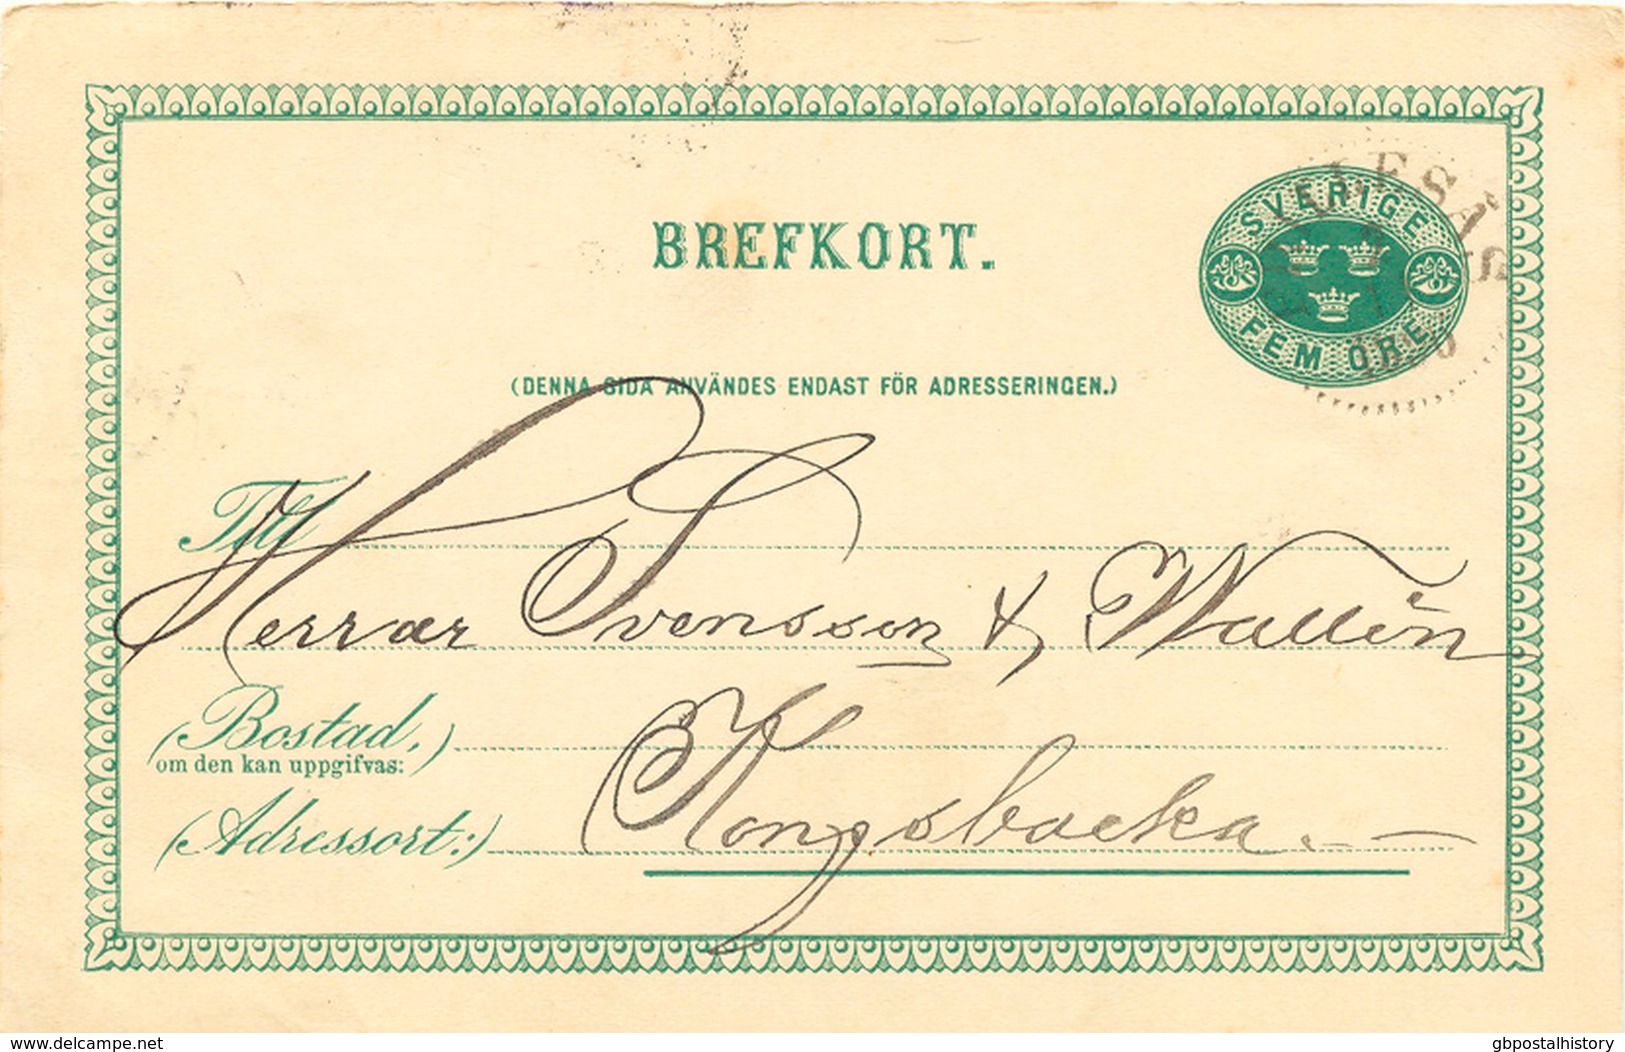 BREFKORT.
SVERIGE
FEM ÖRE
(DENNA SIDA ANVÄNDES ENDAST FÖR ADRESSERINGEN.)
Till
Herrar Svensson & Wallin
(Bostad,)
om den kan uppgifvas:
(Adressort:)
Kongsbacka.
www.delcampe.net
gbpostalhistory